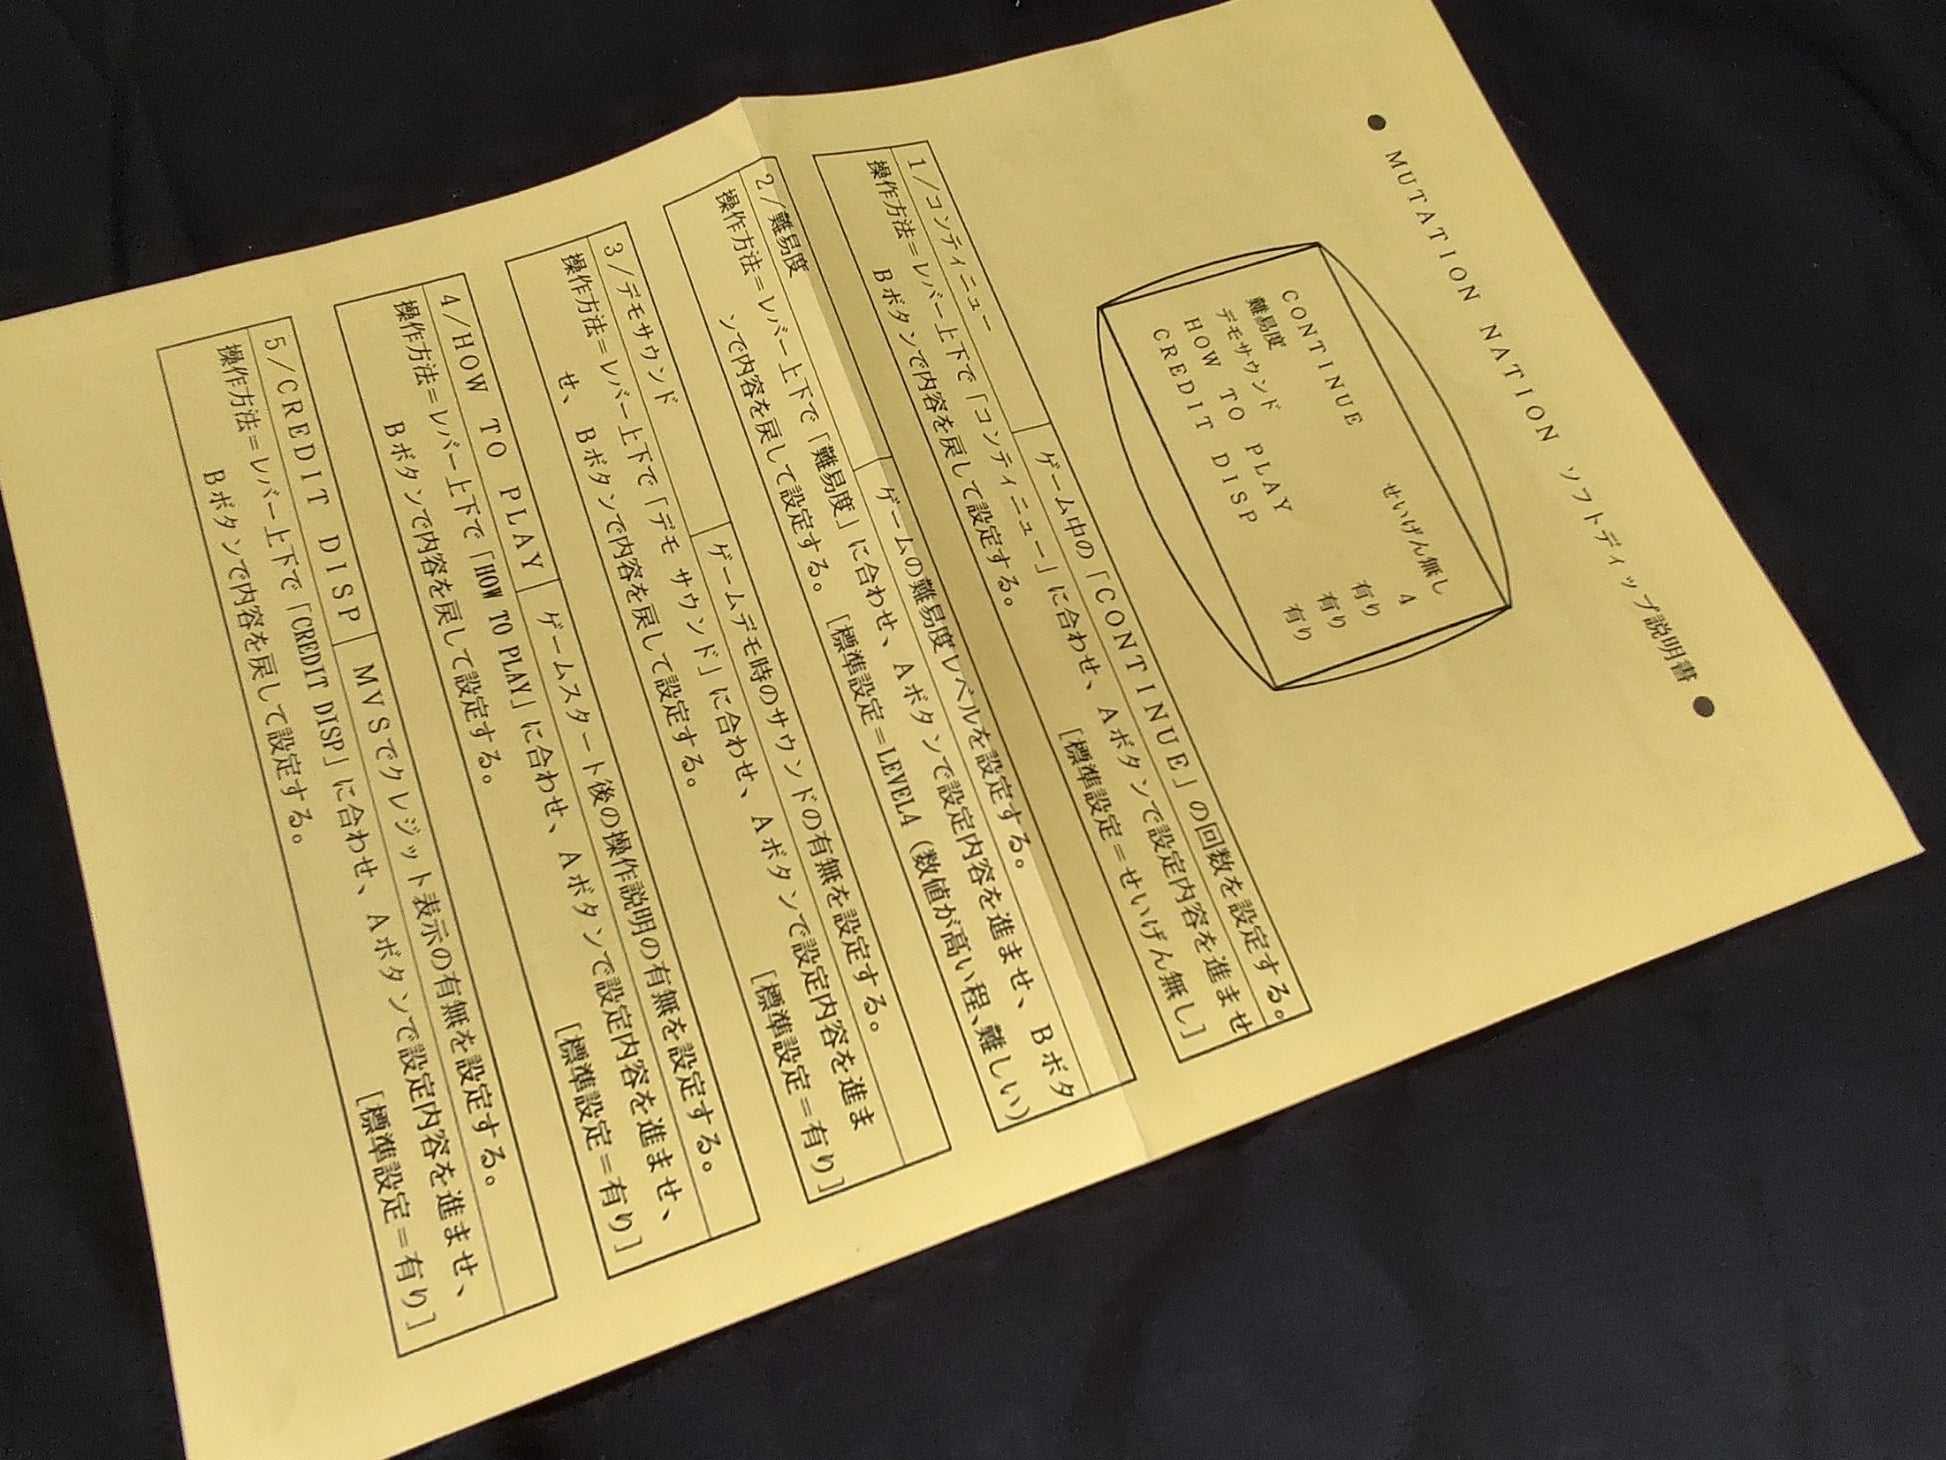 ● MUTATION NATION ソフトディップ説明書 ●
CONTINUE せいげん無し
難易度 4
デモサウンド 有り
HOW TO PLAY 有り
CREDIT DISP 有り
1/コンティニュー ゲーム中の「CONTINUE」の回数を設定する。
操作方法=レバー上下で「コンティニュー」に合わせ、Aボタンで設定内容を進ませ
Bボタンで内容を戻して設定する。 [標準設定=せいげん無し]
2/難易度 ゲームの難易度レベルを設定する。
操作方法=レバー上下で「難易度」に合わせ、Aボタンで設定内容を進ませ、Bボタ
ンで内容を戻して設定する。 [標準設定=LEVEL4(数値が高い程、難しい)
3/デモサウンド ゲームデモ時のサウンドの有無を設定する。
操作方法=レバー上下で「デモ サウンド」に合わせ、Aボタンで設定内容を進ま
せ、Bボタンで内容を戻して設定する。 [標準設定=有り]
4/HOW TO PLAY ゲームスタート後の操作説明の有無を設定する。
操作方法=レバー上下で「HOW TO PLAY」に合わせ、Aボタンで設定内容を進ませ、
Bボタンで内容を戻して設定する。 [標準設定=有り]
5/CREDIT DISP MVSでクレジット表示の有無を設定する。
操作方法=レバー上下で「CREDIT DISP」に合わせ、Aボタンで設定内容を進ませ、
Bボタンで内容を戻して設定する。 [標準設定=有り]